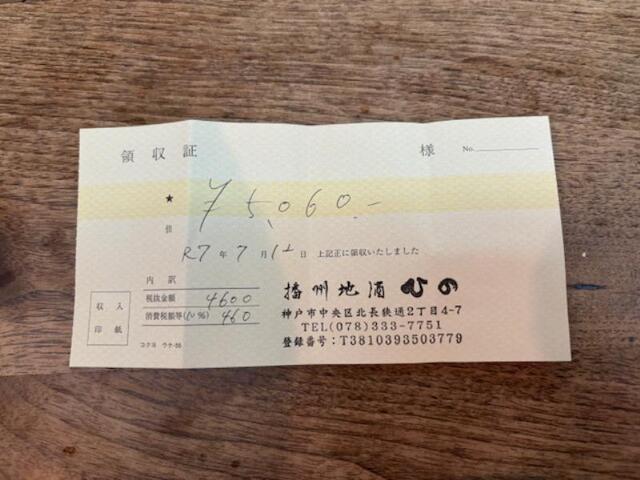 領収証 様 No.
★ ¥5,060.-
但
R7年7月12日 上記正に領収いたしました
内訳
税抜金額 4600
消費税額等(10%) 460
収入
印紙
コクヨ ウケ-55
播州地酒 ひの
神戸市中央区北長狭通2丁目4-7
TEL(078)333-7751
登録番号:T3810393503779